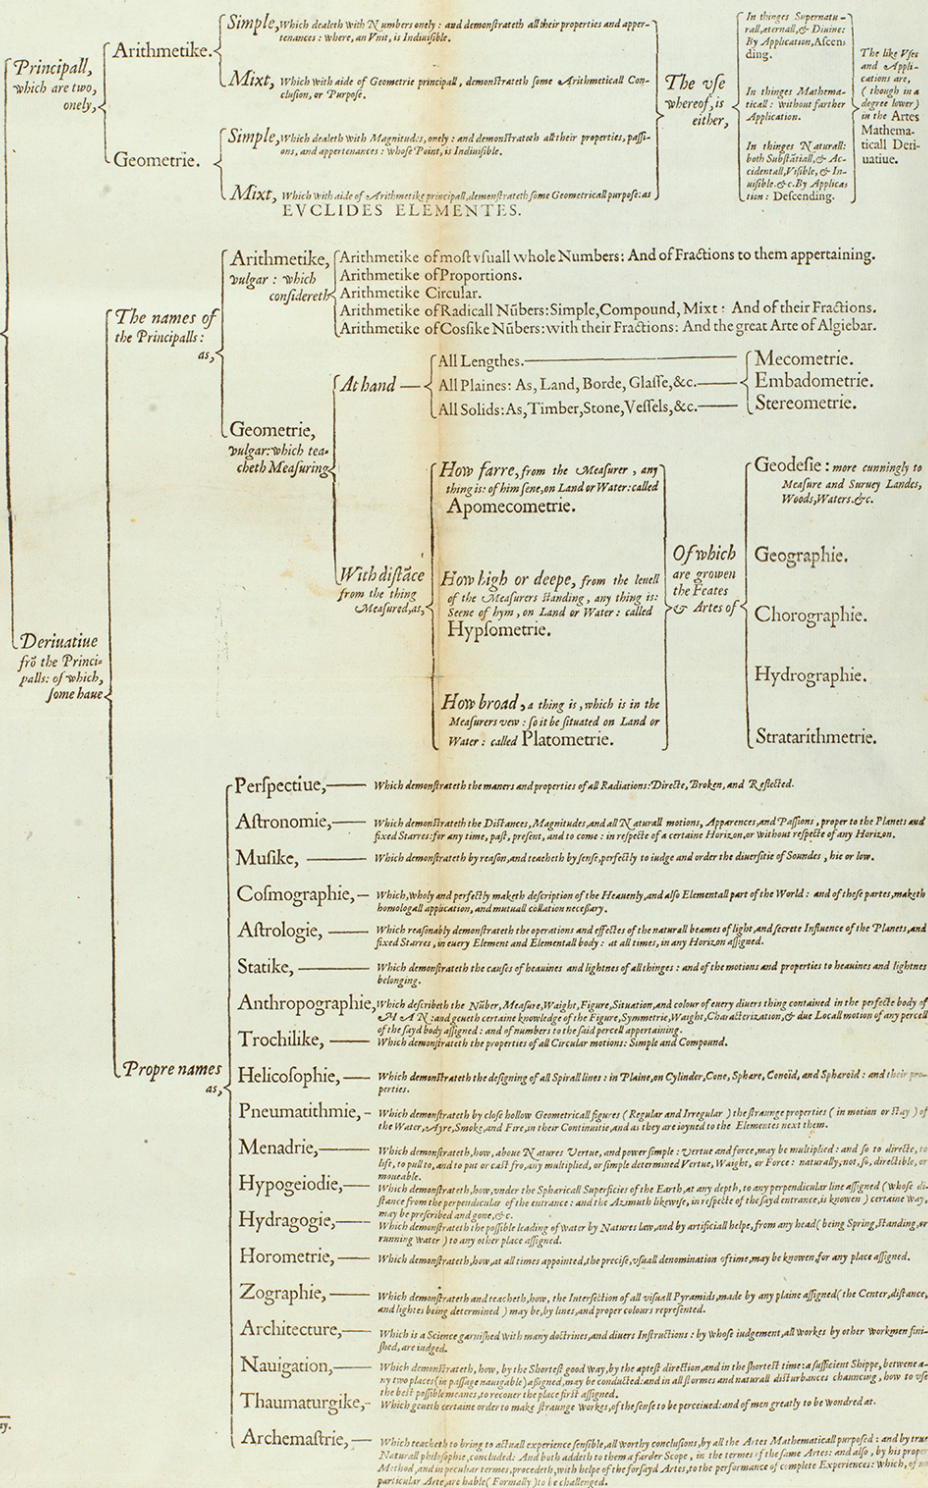 Principall,
which are two,
onely,
Arithmetike.
Simple, Which dealeth with Numbers onely : and demonstrateth all their properties and apper-
tenances : where, an Vnit, is Indiuisible.
Mixt, Which with aide of Geometrie principall, demonstrateth some Arithmeticall Con-
clusion, or Purpose.
Geometrie.
Simple, Which dealeth with Magnitudes, onely : and demonstrateth all their properties, passi-
ons, and appertenances : whose Point, is Indiuisible.
Mixt, Which with aide of Arithmetike principall, demonstrateth some Geometricall purpose: as
EVCLIDES ELEMENTES.
The vse
whereof, is
either,
In thinges Supernatu-
rall, æternall, & Diuine:
By Application, Ascen
ding.
In thinges Mathema-
ticall : without farther
Application.
In thinges Naturall:
both Substātiall, & Ac-
cidentall, Visible, & In-
uisible. &c. By Applica
tion : Descending.
The like Vses
and Appli-
cations are,
( though in a
degree lower)
in the Artes
Mathema-
ticall Deri-
uatiue.
Deriuatiue
frō the Princi-
palls: of which,
some haue
The names of
the Principalls :
as,
Arithmetike,
vulgar : which
considereth
Arithmetike of most vsuall whole Numbers: And of Fractions to them appertaining.
Arithmetike of Proportions.
Arithmetike Circular.
Arithmetike of Radicall Nūbers: Simple, Compound, Mixt : And of their Fractions.
Arithmetike of Cossike Nūbers: with their Fractions: And the great Arte of Algiebar.
Geometrie,
vulgar: which tea-
cheth Measuring
At hand
All Lengthes.
All Plaines: As, Land, Borde, Glasse, &c.
All Solids: As, Timber, Stone, Vessels, &c.
Mecometrie.
Embadometrie.
Stereometrie.
With distāce
from the thing
Measured, as,
How farre, from the Measurer , any
thing is: of him sene, on Land or Water: called
Apomecometrie.
How high or deepe, from the leuell
of the Measurers standing, any thing is:
Seene of hym , on Land or Water : called
Hypsometrie.
How broad, a thing is , which is in the
Measurers vew : so it be situated on Land or
Water : called Platometrie.
Of which
are growen
the Feates
& Artes of
Geodesie : more cunningly to
Measure and Suruey Landes,
Woods, Waters. &c.
Geographie.
Chorographie.
Hydrographie.
Stratarithmetrie.
Propre names
as,
Perspectiue, Which demonstrateth the maners and properties of all Radiations: Directe, Broken, and Reflected.
Astronomie, Which demonstrateth the Distances, Magnitudes, and all Naturall motions, Apparences, and Passions , proper to the Planets and
fixed Starres: for any time, past, present, and to come : in respecte of a certaine Horizon, or without respecte of any Horizon.
Musike, Which demonstrateth by reason, and teacheth by sense, perfectly to iudge and order the diuersitie of Soundes , hie or low.
Cosmographie, Which, wholy and perfectly maketh description of the Heauenly, and also Elementall part of the World : and of these partes, maketh
homologall application, and mutuall collation necessary.
Astrologie, Which reasonably demonstrateth the operations and effectes of the naturall beames of light, and secrete Influence of the Planets, and
fixed Starres, in euery Element and Elementall body : at all times, in any Horizon assigned.
Statike, Which demonstrateth the causes of heauines and lightnes of all thinges : and of the motions and properties to heauines and lightnes
belonging.
Anthropographie, Which describeth the Nūber, Measure, Waight, Figure, Situation, and colour of euery diuers thing contained in the perfecte body of
MAN: and geueth certaine knowledge of the Figure, Symmetrie, Waight, Characterization, & due Locall motion of any percell
of the sayd body assigned : and of numbers to the said percell appertaining.
Trochilike, Which demonstrateth the properties of all Circular motions: Simple and Compound.
Helicosophie, Which demonstrateth the designing of all Spirall lines : in Plaine, on Cylinder, Cone, Sphære, Conoïd, and Sphæroid : and their pro-
perties.
Pneumatithmie, Which demonstrateth by close hollow Geometricall figures ( Regular and Irregular ) the straunge properties ( in motion or stay ) of
the Water, Ayre, Smoke, and Fire, in their Continuitie, and as they are ioyned to the Elementes next them.
Menadrie, Which demonstrateth, how, aboue Natures Vertue, and power simple : Vertue and force, may be multiplied : and so to directe, to
lift, to pull to, and to put or cast fro, any multiplied, or simple determined Vertue, Waight, or Force : naturally, not, so, directible, or
moueable.
Hypogeiodie, Which demonstrateth, how, vnder the Sphæricall Superficies of the Earth, at any depth, to any perpendicular line assigned ( whose di-
stance from the perpendicular of the entrance : and the Azimuth likewise, in respecte of the sayd entrance, is knowen ) certaine way,
may be prescribed and gone, &c.
Hydragogie, Which demonstrateth the possible leading of water by Natures law, and by artificiall helpe, from any head ( being Spring, standing, or
running Water ) to any other place assigned.
Horometrie, Which demonstrateth, how, at all times appointed, the precise, vsuall denomination of time, may be knowen, for any place assigned.
Zographie, Which demonstrateth and teacheth, how, the Intersection of all visuall Pyramids, made by any plaine assigned ( the Center, distance,
and lightes being determined ) may be, by lines, and proper colours represented.
Architecture, Which is a Science garnished with many doctrines, and diuers Instructions : by whose iudgement, all workes by other workmen fini-
shed, are iudged.
Nauigation, Which demonstrateth, how, by the Shortest good way, by the aptest direction, and in the shortest time: a sufficient Shippe, betwene a-
ny two places ( in passage nauigable ) assigned, may be conducted: and in all stormes and naturall disturbances chauncing, how to vse
the best possible meanes, to recouer the place first assigned.
Thaumaturgike, Which geueth certaine order to make straunge workes, of the sense to be perceiued: and of men greatly to be wondred at.
Archemastrie, Which teacheth to bring to actuall experience sensible, all worthy conclusions, by all the Artes Mathematicall purposed : and by true
Naturall philosophie, concluded: And both addeth to them a farder Scope , in the termes of the same Artes: and also , by his proper
Method, and in peculiar termes, procedeth, with helpe of the forsayd Artes, to the performance of complete Experiences: which, of no
particular Arte, are hable ( Formally ) to be challenged.